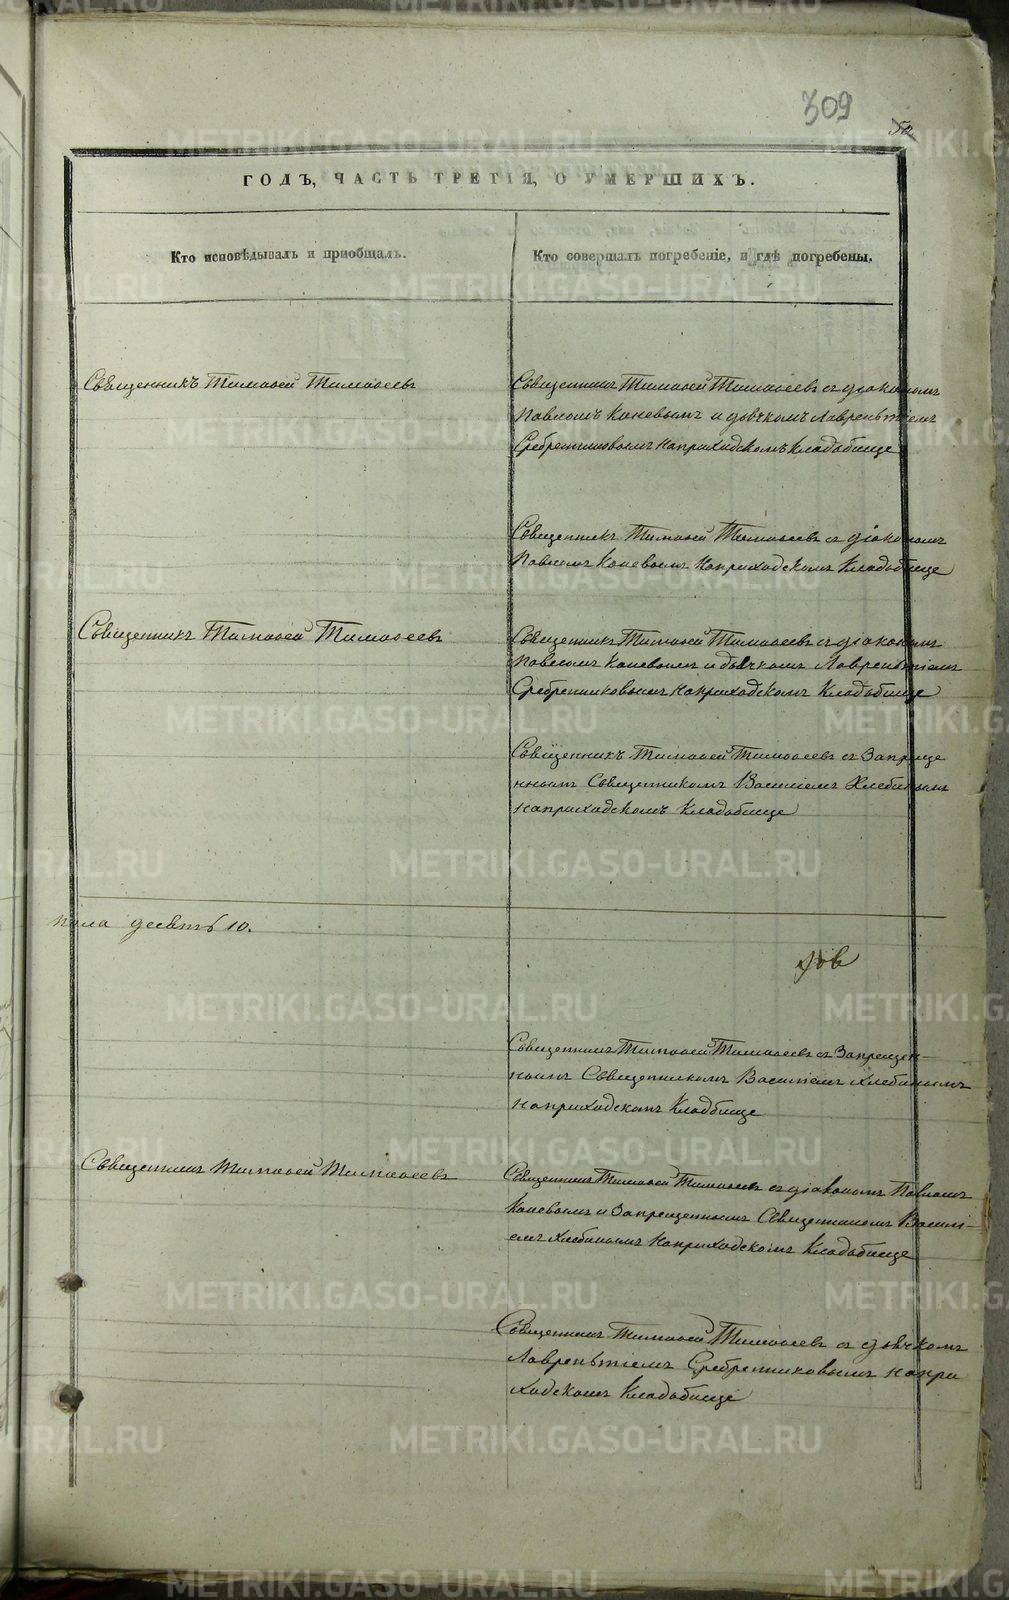 309
50
ГОДЪ, ЧАСТЬ ТРЕТІЯ, О УМЕРШИХЪ.
Кто исповѣдывалъ и пріобщалъ.
Кто совершалъ погребеніе, и гдѣ погребены.
Священникъ Тимоѳей Тимоѳеевъ
Священникъ Тимоѳей Тимоѳеевъ съ діакономъ
Павломъ Каневымъ и дьячкомъ Лаврентіемъ
Сребрениковымъ наприходскомъ Кладбище
Священникъ Тимоѳей Тимоѳеевъ съ діакономъ
Павломъ Каневымъ наприходскомъ Кладбище
Священникъ Тимоѳей Тимоѳеевъ
Священникъ Тимоѳей Тимоѳеевъ съ діакономъ
Павломъ Каневымъ и дьячкомъ Лаврентіемъ
Сребрениковымъ наприходскомъ Кладбище
Священникъ Тимоѳей Тимоѳеевъ съ Запреще
ннымъ Священникомъ Василіемъ Хлебинымъ
наприходскомъ Кладбище
пола десять 10.
Священникъ Тимоѳей Тимоѳеевъ съ Запрещен-
нымъ Священникомъ Василіемъ Хлебинымъ
наприходскомъ Кладбище
Священникъ Тимоѳей Тимоѳеевъ
Священникъ Тимоѳей Тимоѳеевъ съ діакономъ Павломъ
Каневымъ и Запрещеннымъ Священникомъ Василі-
емъ Хлебинымъ наприходскомъ Кладбище
Священникъ Тимоѳей Тимоѳеевъ съ дьячкомъ
Лаврентіемъ Сребрениковымъ напри
ходскомъ Кладбище
METRIKI.GASO-URAL.RU